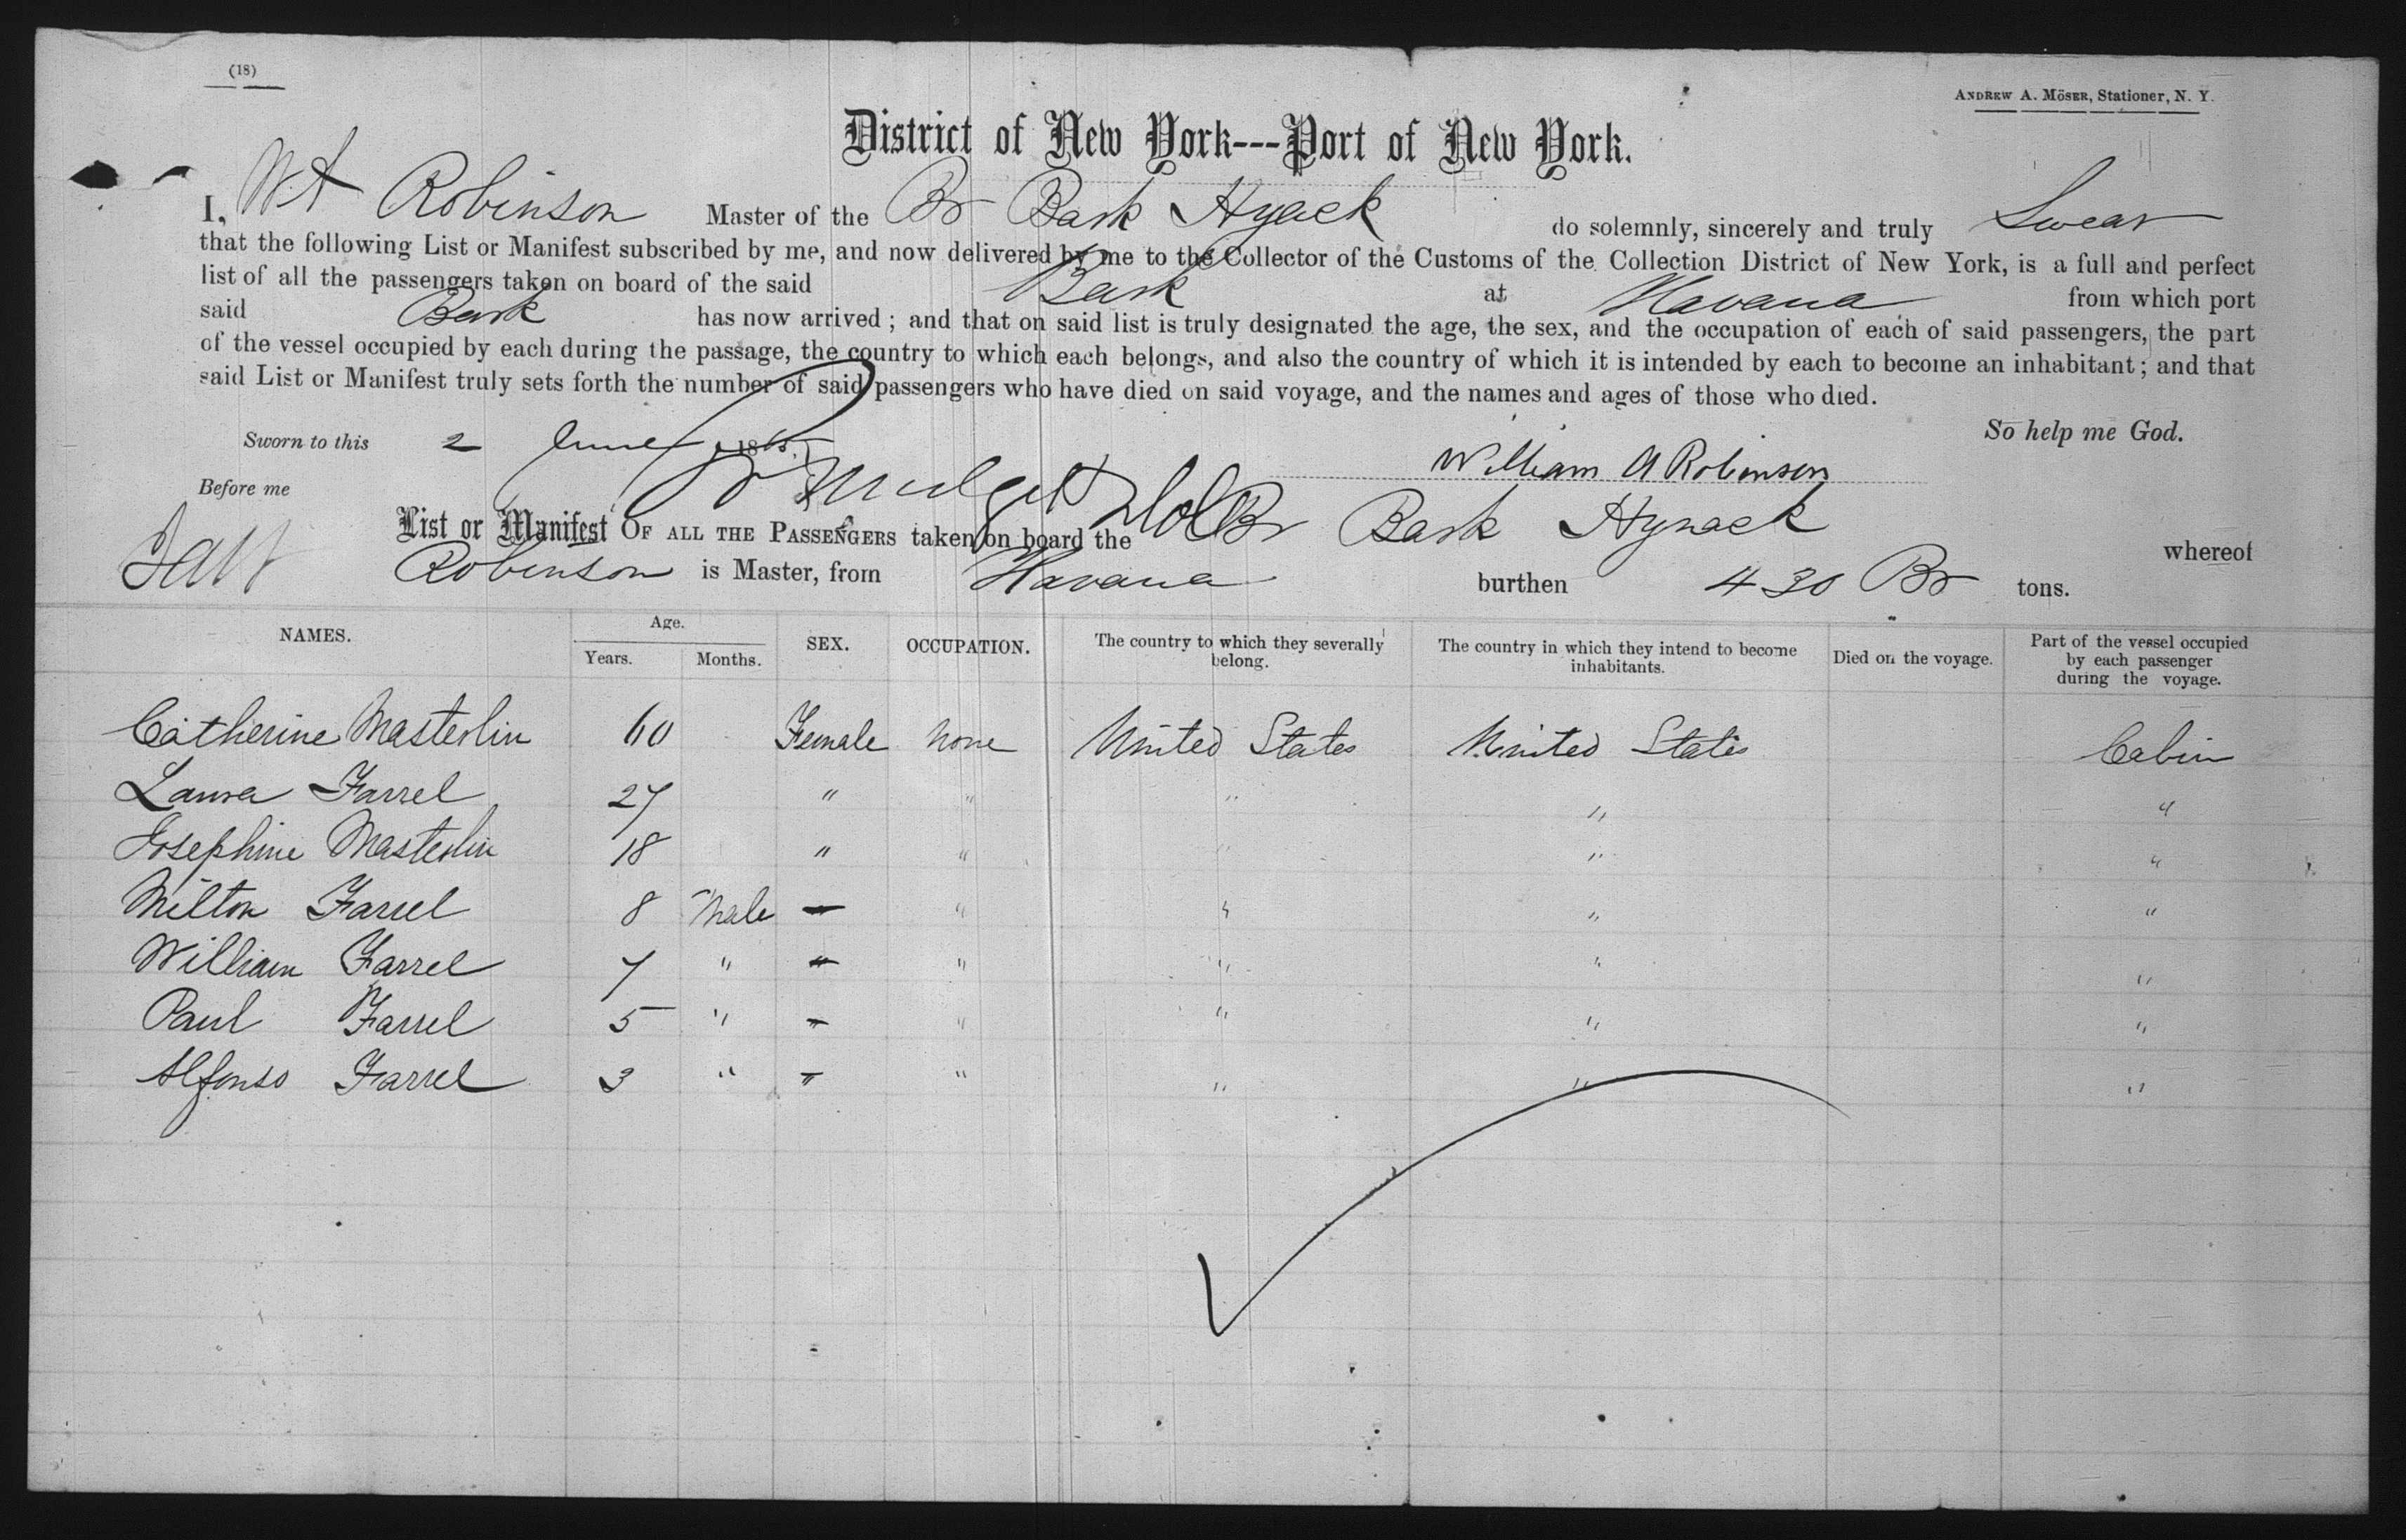 (18)
ANDREW A. MÖSER, Stationer, N. Y.
District of New York---Port of New York.
I, W A Robinson Master of the Br Bark Hyack do solemnly, sincerely and truly Swear
that the following List or Manifest subscribed by me, and now delivered by me to the Collector of the Customs of the Collection District of New York, is a full and perfect
list of all the passengers taken on board of the said Bark at Havana from which port
said Bark has now arrived; and that on said list is truly designated the age, the sex, and the occupation of each of said passengers, the part
of the vessel occupied by each during the passage, the country to which each belongs, and also the country of which it is intended by each to become an inhabitant; and that
said List or Manifest truly sets forth the number of said passengers who have died on said voyage, and the names and ages of those who died.
So help me God.
Sworn to this 2 June 1865
William A Robinson
Before me
List or Manifest OF ALL THE PASSENGERS taken on board the Br Bark Hynack whereof
Robinson is Master, from Havana burthen 430 Br tons.
NAMES. Age. Years. Months. SEX. OCCUPATION. The country to which they severally belong. The country in which they intend to become inhabitants. Died on the voyage. Part of the vessel occupied by each passenger during the voyage.
Catherine Masterlin 60 Female None United States United States Cabin
Laura Farrel 27 " " " " "
Josephine Masterlin 18 " " " " "
Milton Farrel 8 Male " " " " "
William Farrel 7 " " " " " "
Paul Farrel 5 " " " " " "
Alfonso Farrel 3 " " " " " "